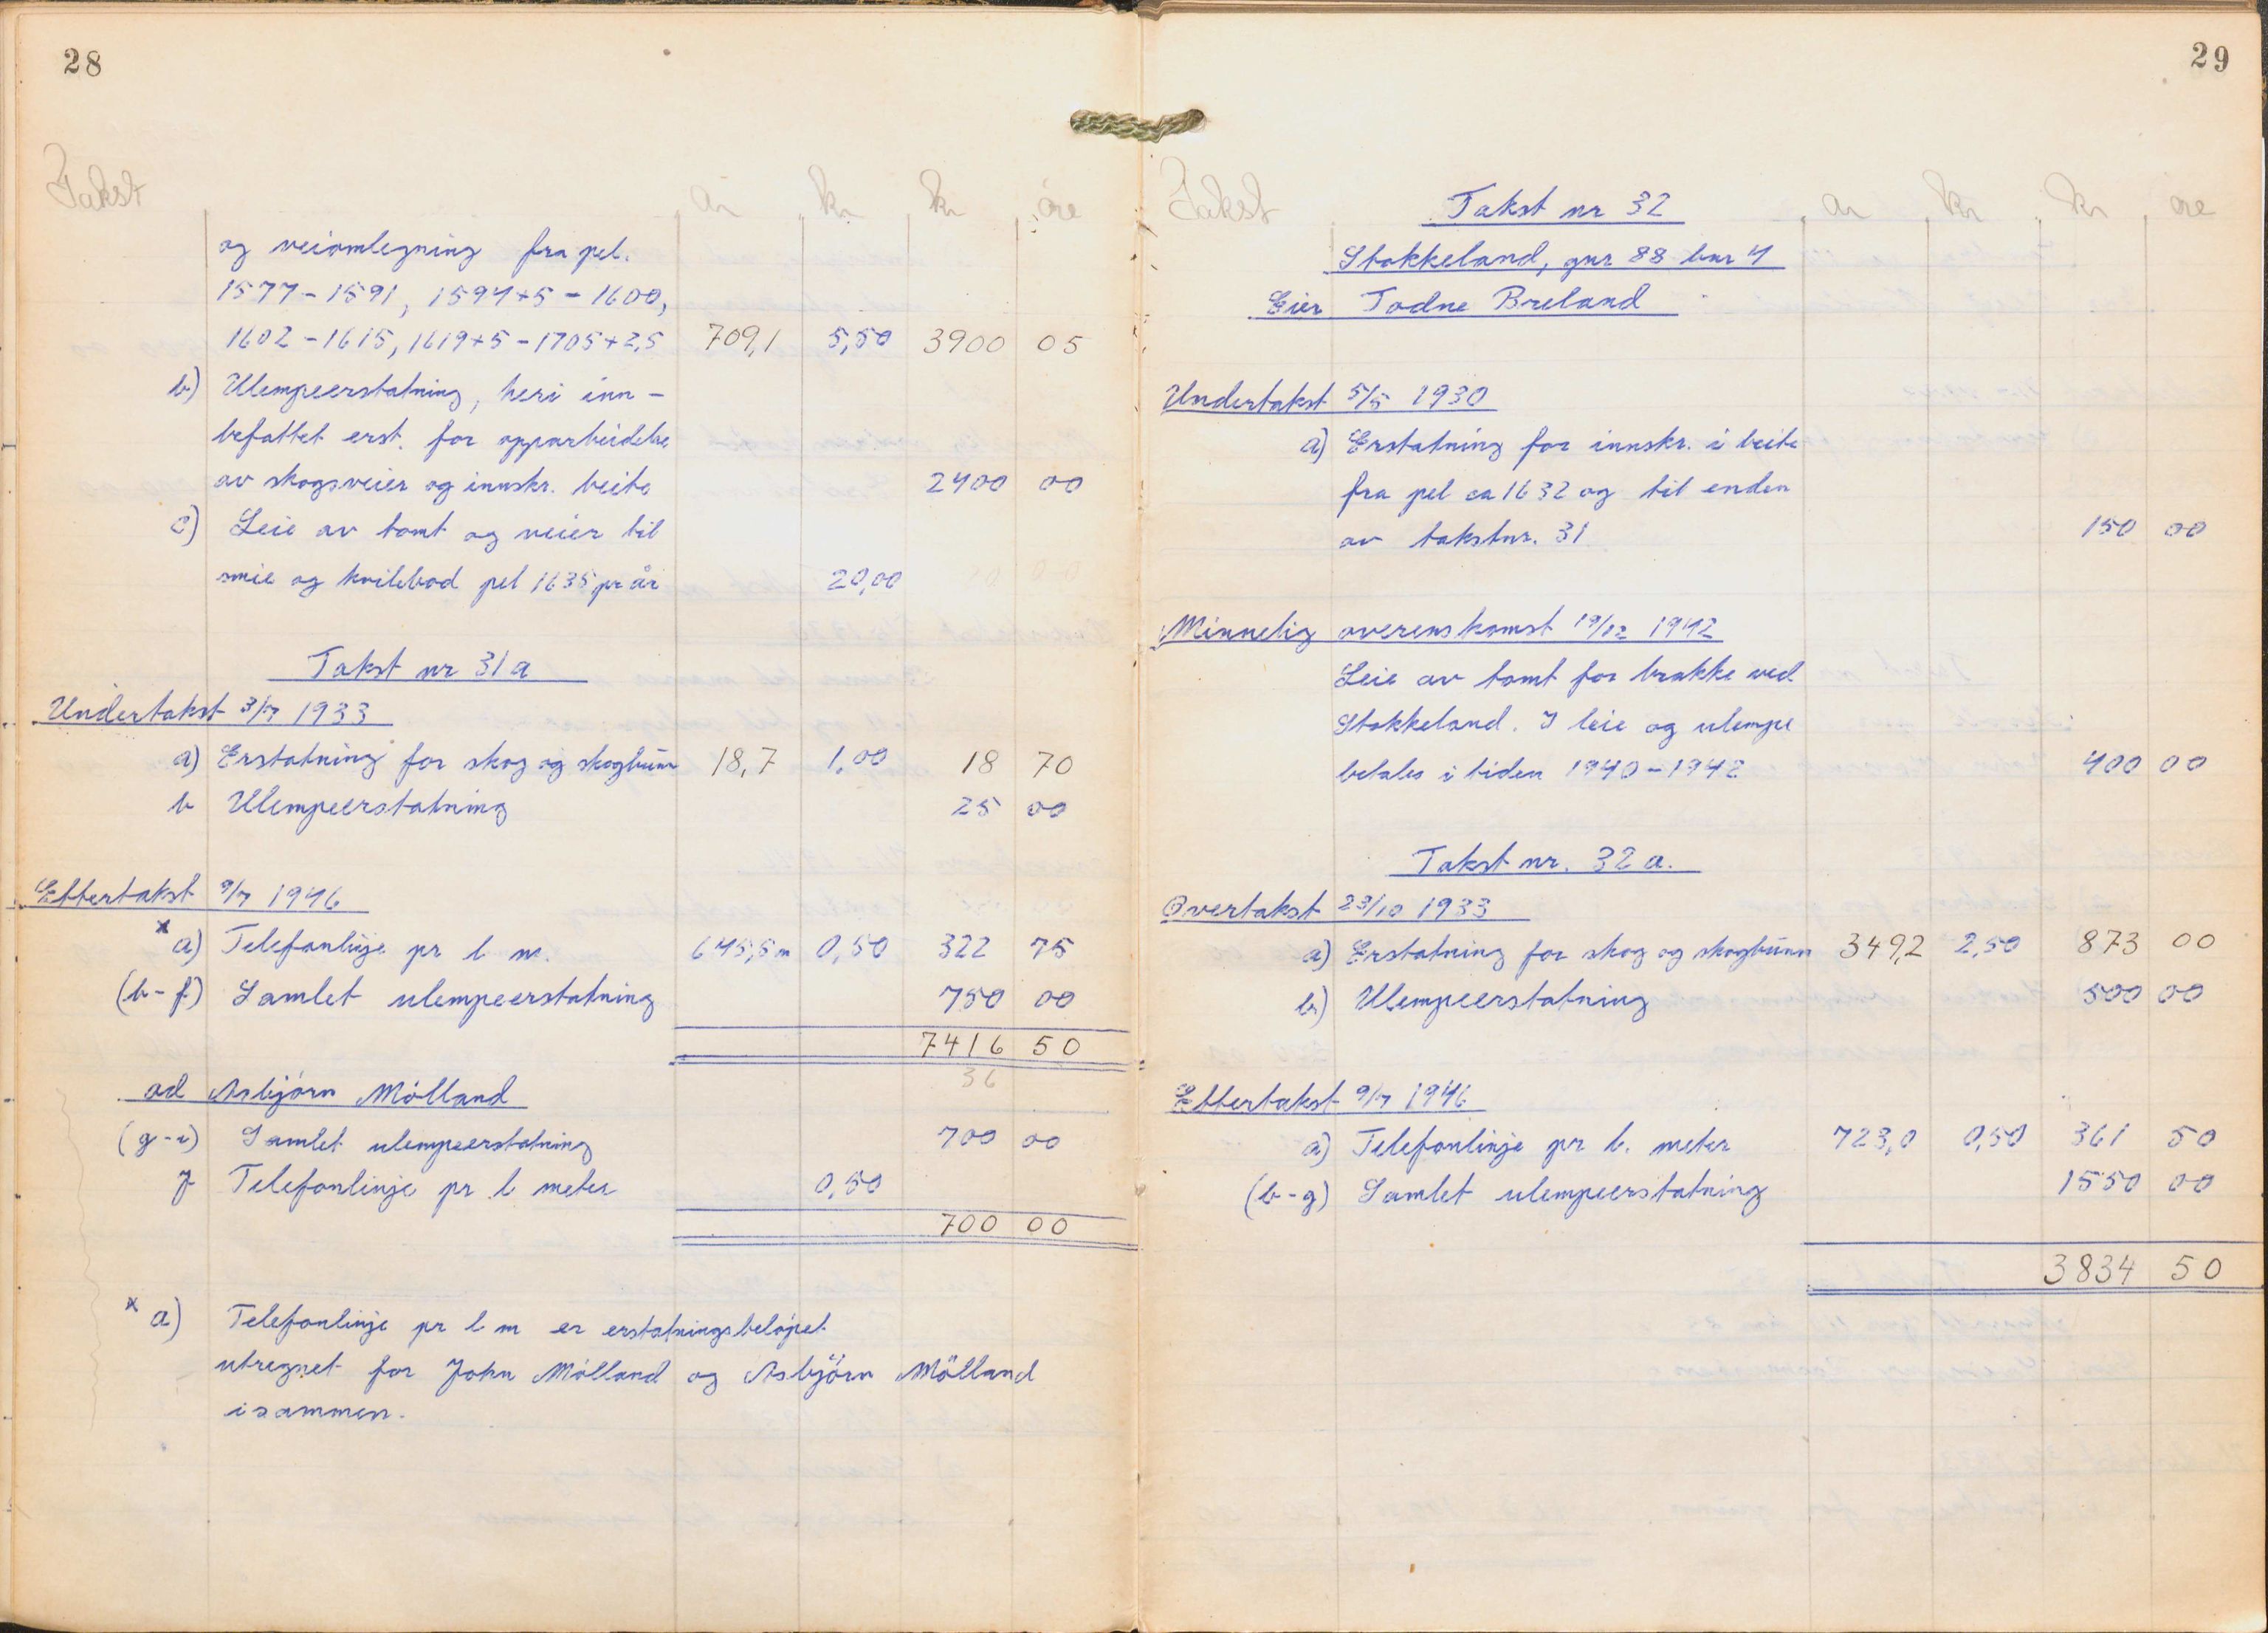 28
Takst ar kr kr øre
og veiomlegning fra pel.
1577-1591, 1594+5-1600,
1602-1615, 1619+5-1705+2,5 709,1 5,50 3900 05
b) Ulempeerstatning, heri inn-
befattet erst. for opparbeidelse
av skogsveier og innskr. beite 2400 00
c) Leie av tomt og veier til
smie og kvilebod pel 1635 pr år 20,00
Takst nr 31a
Undertakst 3/7 1933
a) Erstatning for skog og skogbunn 18,7 1,00 18 70
b Ulempeerstatning 25 00
Ettertakst 9/7 1946
x a) Telefonlinje pr l m. 645,5 m 0,50 322 75
(b-f) Samlet ulempeerstatning 750 00
7416 50
36
ad Asbjörn Mölland
(g-i) Samlet ulempeerstatning 700 00
j Telefonlinje pr l meter 0,50
700 00
x a) Telefonlinje pr l m er erstatningsbeløpet
utregnet for John Mölland og Asbjörn Mölland
isammen.
29
Takst ar kr kr øre
Takst nr 32
Stokkeland, gnr 88 bnr 4
Eier Todne Breland
Undertakst 5/5 1930
a) Erstatning for innskr. i beite
fra pel ca 1632 og til enden
av takstnr. 31 150 00
Minnelig overenskomst 19/12 1942
Leie av tomt for brakke ved
Stokkeland. I leie og ulempe
betales i tiden 1940-1942 400 00
Takst nr. 32 a.
Overtakst 23/10 1933
a) Erstatning for skog og skogbunn 349,2 2,50 873 00
b) Ulempeerstatning 500 00
Ettertakst 9/7 1946
a) Telefonlinje pr l. meter 723,0 0,50 361 50
(b-g) Samlet ulempeerstatning 1550 00
3834 50